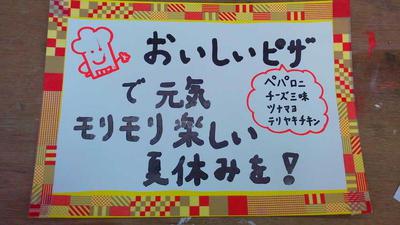 おいしいピザ
で元気
モリモリ楽しい
夏休みを!
ペパロニ
チーズ三味
ツナマヨ
テリヤキチキン